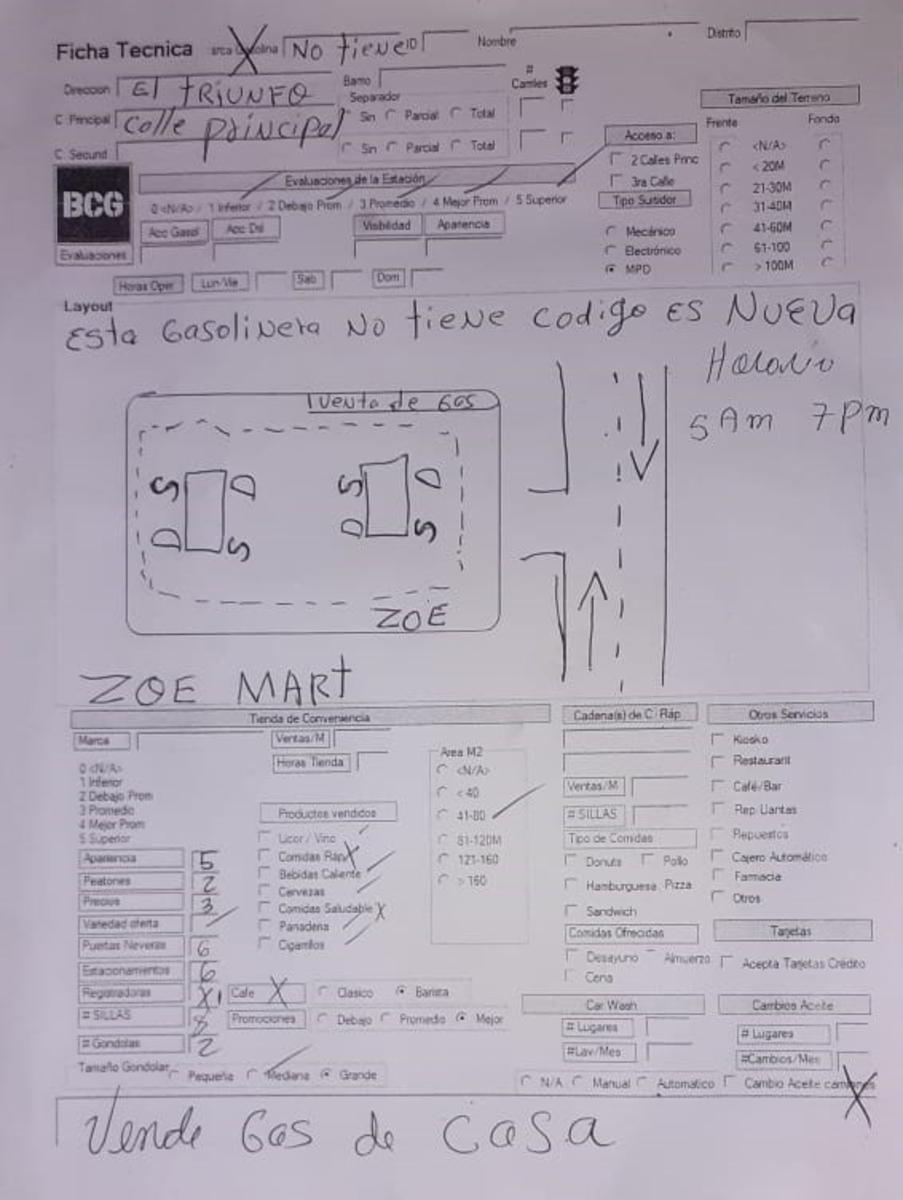 Ficha Tecnica No tiene ID Nombre Distrito
Direccion El TRIUNFO Barrio # Carriles
Separador
C Principal Calle principal Sin Parcial Total
C Secund Sin Parcial Total
Tamaño del Terreno
Frente Fondo
<N/A>
< 20M
21-30M
31-40M
41-60M
61-100
> 100M
Acceso a:
2 Calles Princ
3ra Calle
Tipo Surtidor
Mecánico
Electrónico
MPD
BCG
Evaluaciones de la Estación
0 <N/A> / 1 Inferior / 2 Debajo Prom / 3 Promedio / 4 Mejor Prom / 5 Superior
Acc Gasol Acc Dsl Visibilidad Aparencia
Evaluaciones
Horas Oper Lun-Vie Sab Dom
Layout
Esta Gasolinera No tiene codigo ES NUEVA
Horario
5 Am 7 Pm
Venta de Gas
S D S D
D S D S
ZOE
ZOE MARt
Tienda de Conveniencia
Marca Ventas/M
Horas Tienda
0 <N/A>
1 Inferior
2 Debajo Prom
3 Promedio
4 Mejor Prom
5 Superior
Apariencia 5
Peatones 2
Precios 3
Variedad oferta
Puertas Neveras 6
Estacionamientos 6
Registradoras X 1
# SILLAS 8
# Gondolas 2
Tamaño Gondolar Pequeña Mediana Grande
Productos vendidos
Licor / Vino
Comidas Ráp X
Bebidas Caliente
Cervezas
Comidas Saludable X
Panaderia
Cigarrillos
Cafe X Clasico Barista
Promociones Debajo Promedio Mejor
Area M2
<N/A>
< 40
41-80
81-120M
121-160
> 160
Cadena(s) de C Ráp
Ventas/M
# SILLAS
Tipo de Comidas
Donuts Pollo
Hamburguesa Pizza
Sandwich
Comidas Ofrecidas
Desayuno Almuerzo
Cena
Otros Servicios
Kiosko
Restaurant
Café/Bar
Rep Llantas
Repuestos
Cajero Automático
Farmacia
Otros
Tarjetas
Acepta Tarjetas Crédito
Car Wash
# Lugares
#Lav/Mes
N/A Manual Automatico
Cambios Aceite
# Lugares
#Cambios/Mes
Cambio Aceite camiones X
Vende Gas de CaSa